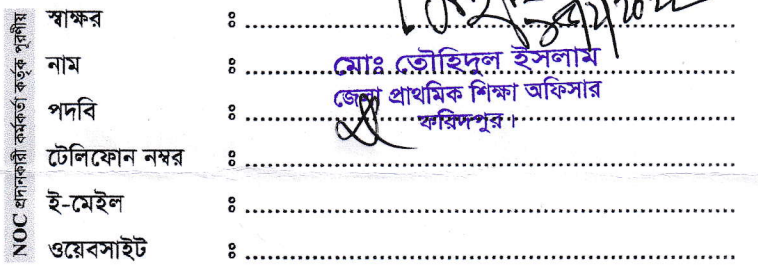 NOC প্রদানকারী কর্মকর্তা কর্তৃক পূরণীয়
স্বাক্ষর ঃ
নাম ঃ মোঃ তৌহিদুল ইসলাম
জেলা প্রাথমিক শিক্ষা অফিসার
পদবি ঃ ফরিদপুর।
টেলিফোন নম্বর ঃ
ই-মেইল ঃ
ওয়েবসাইট ঃ